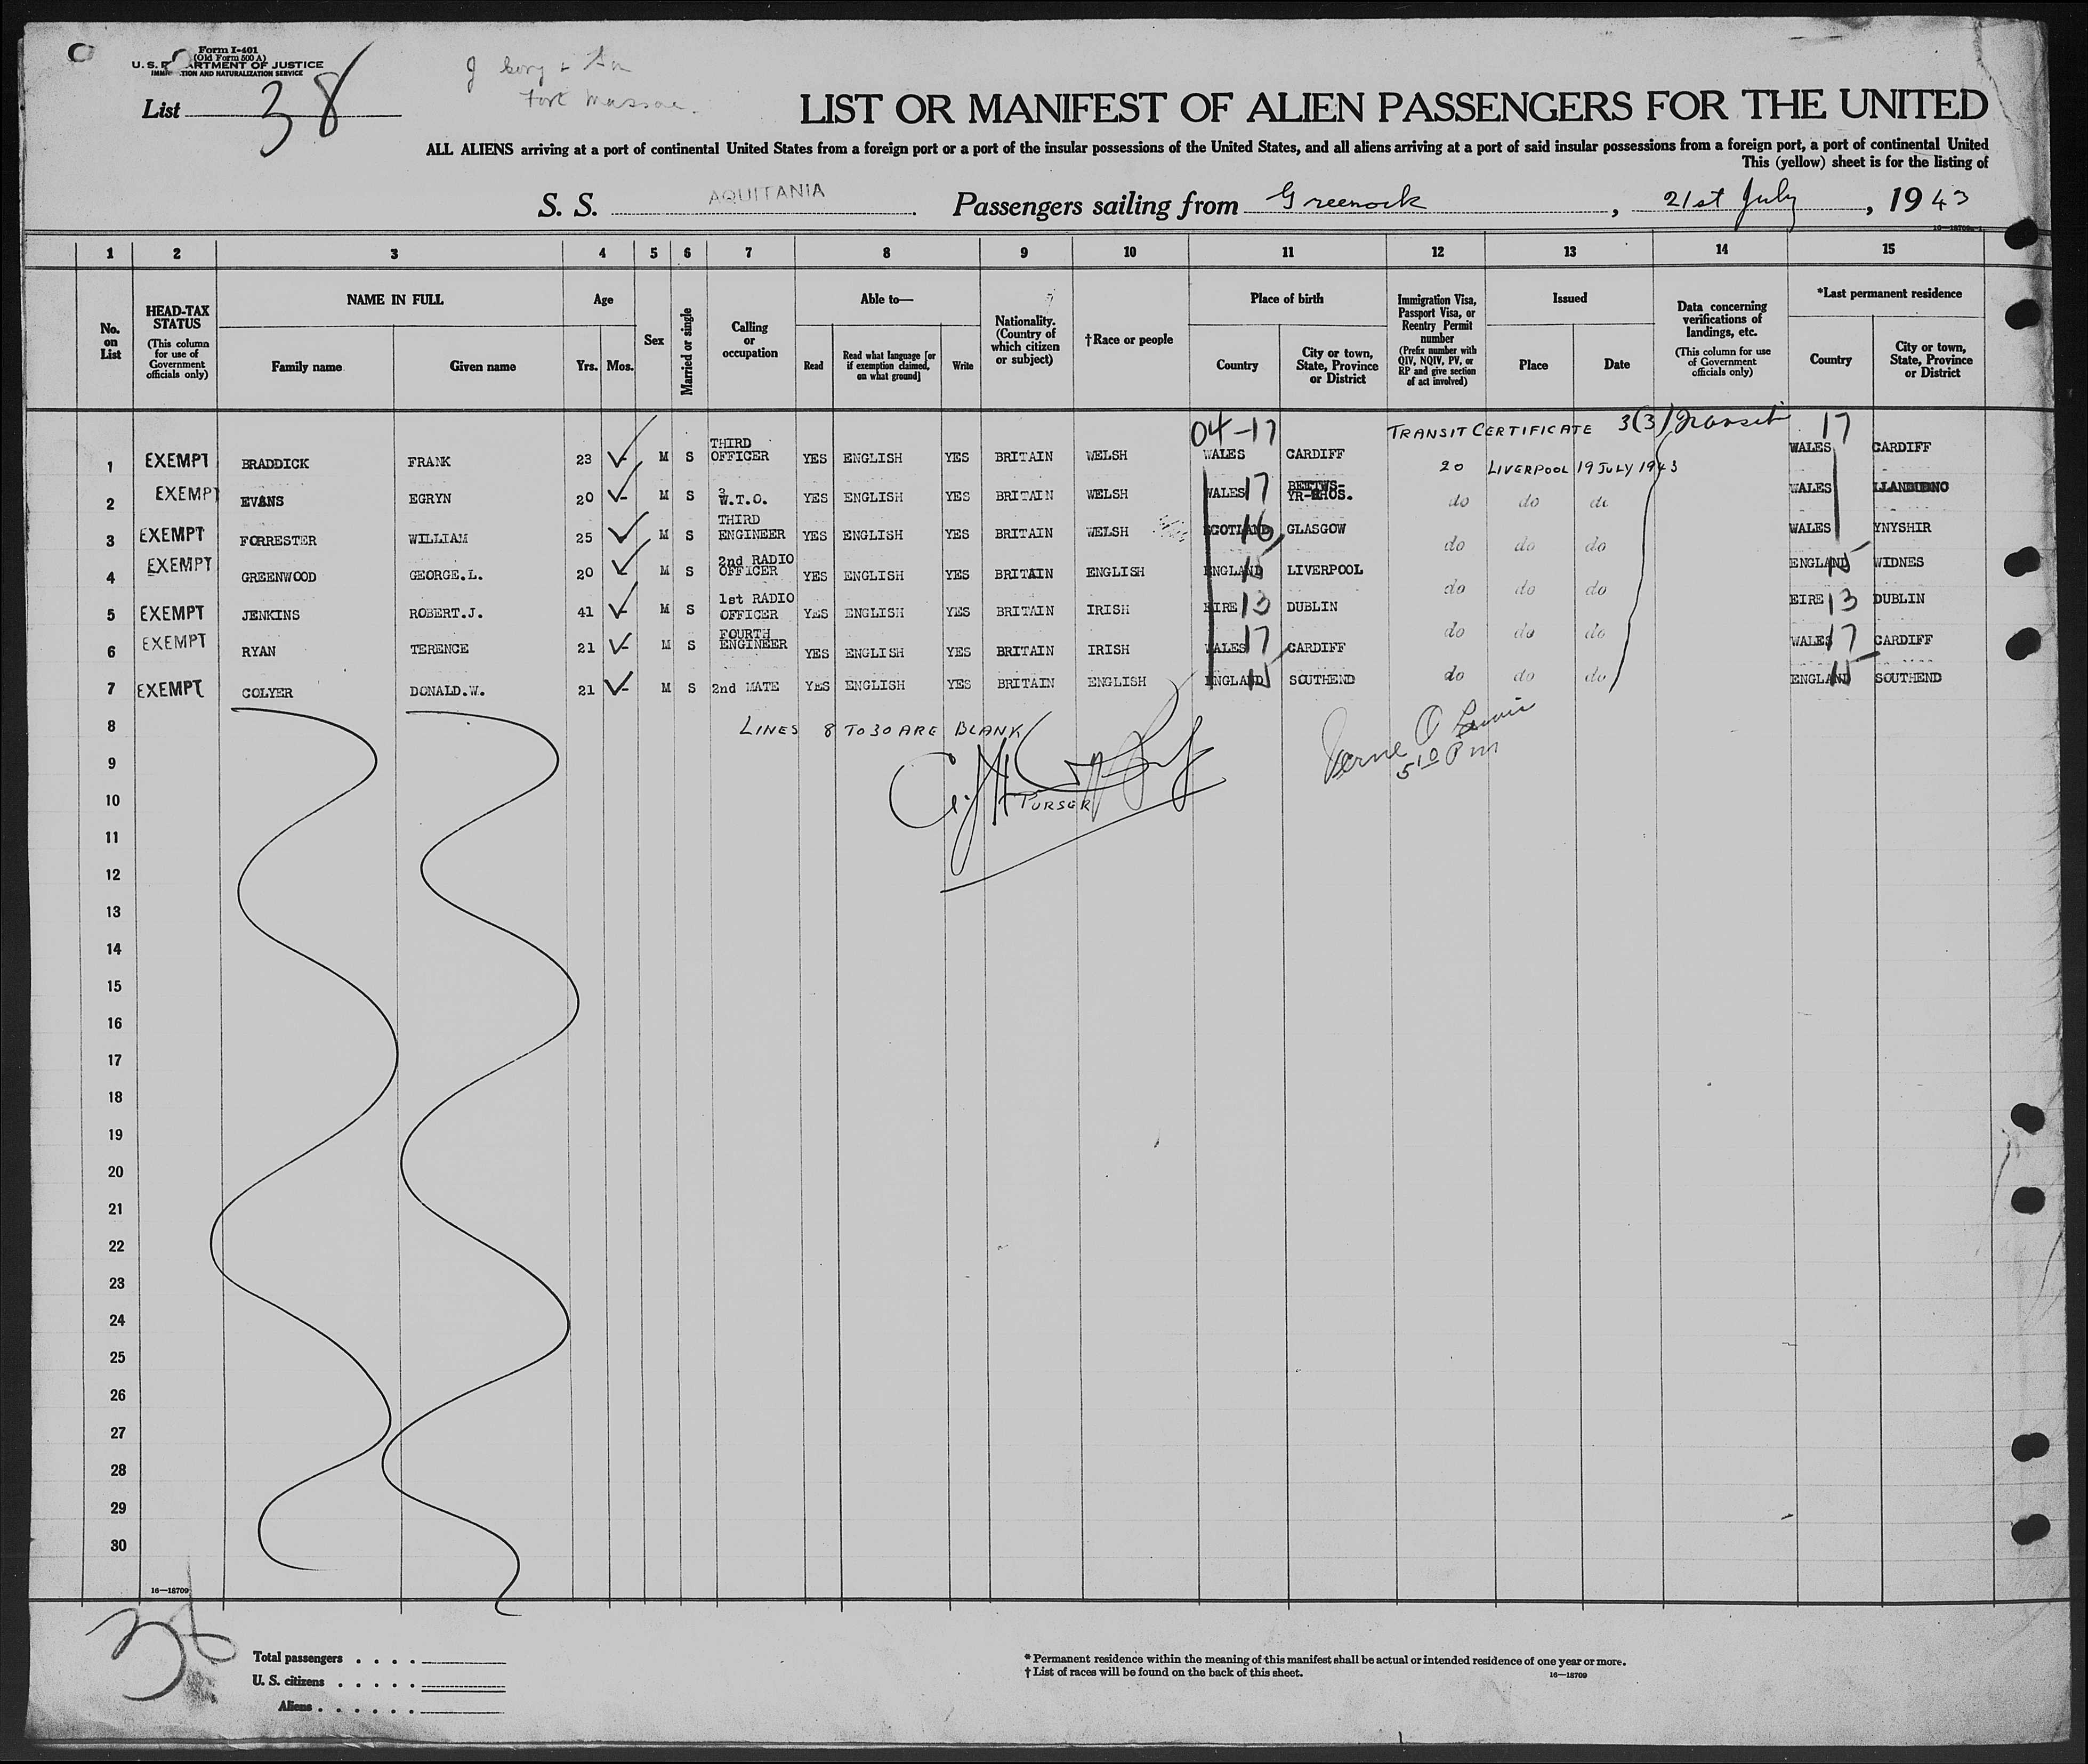 Form I-401
(Old Form 500 A)
U. S. DEPARTMENT OF JUSTICE
IMMIGRATION AND NATURALIZATION SERVICE
List 38
LIST OR MANIFEST OF ALIEN PASSENGERS FOR THE UNITED
ALL ALIENS arriving at a port of continental United States from a foreign port or a port of the insular possessions of the United States, and all aliens arriving at a port of said insular possessions from a foreign port, a port of continental United
This (yellow) sheet is for the listing of
S. S. AQUITANIA Passengers sailing from Greenock, 21st July, 1943
1 2 3 4 5 6 7 8 9 10 11 12 13 14 15
No. on List
HEAD-TAX STATUS (This column for use of Government officials only)
NAME IN FULL Family name Given name
Age Yrs. Mos.
Sex
Married or single
Calling or occupation
Able to— Read Read what language [or if exemption claimed, on what ground] Write
Nationality. (Country of which citizen or subject)
†Race or people
Place of birth Country City or town, State, Province or District
Immigration Visa, Passport Visa, or Reentry Permit number (Prefix number with QIV, NQIV, PV, or RP and give section of act involved)
Issued Place Date
Data concerning verifications of landings, etc. (This column for use of Government officials only)
*Last permanent residence Country City or town, State, Province or District
04-17 TRANSIT CERTIFICATE 3(3) Transit 17
1 EXEMPT BRADDICK FRANK 23 M S THIRD OFFICER YES ENGLISH YES BRITAIN WELSH WALES CARDIFF 20 LIVERPOOL 19 JULY 1943 WALES CARDIFF
2 EXEMPT EVANS EGRYN 20 M S 3 W.T.O. YES ENGLISH YES BRITAIN WELSH WALES 17 BETTWS-YR-RHOS. do do do WALES
3 EXEMPT FORRESTER WILLIAM 25 M S THIRD ENGINEER YES ENGLISH YES BRITAIN WELSH SCOTLAND 16 GLASGOW do do do WALES YNYSHIR
4 EXEMPT GREENWOOD GEORGE.L. 20 M S 2nd RADIO OFFICER YES ENGLISH YES BRITAIN ENGLISH ENGLAND LIVERPOOL do do do ENGLAND WIDNES
5 EXEMPT JENKINS ROBERT.J. 41 M S 1st RADIO OFFICER YES ENGLISH YES BRITAIN IRISH EIRE 13 DUBLIN do do do EIRE 13 DUBLIN
6 EXEMPT RYAN TERENCE 21 M S FOURTH ENGINEER YES ENGLISH YES BRITAIN IRISH WALES 17 CARDIFF do do do WALES 17 CARDIFF
7 EXEMPT COLYER DONALD.W. 21 M S 2nd MATE YES ENGLISH YES BRITAIN ENGLISH ENGLAND SOUTHEND do do do ENGLAND SOUTHEND
8 LINES 8 TO 30 ARE BLANK
9 5 10 Pm
10 PURSER
11
12
13
14
15
16
17
18
19
20
21
22
23
24
25
26
27
28
29
30
16—18709
38
Total passengers
U. S. citizens
Aliens
* Permanent residence within the meaning of this manifest shall be actual or intended residence of one year or more.
† List of races will be found on the back of this sheet.
16—18709